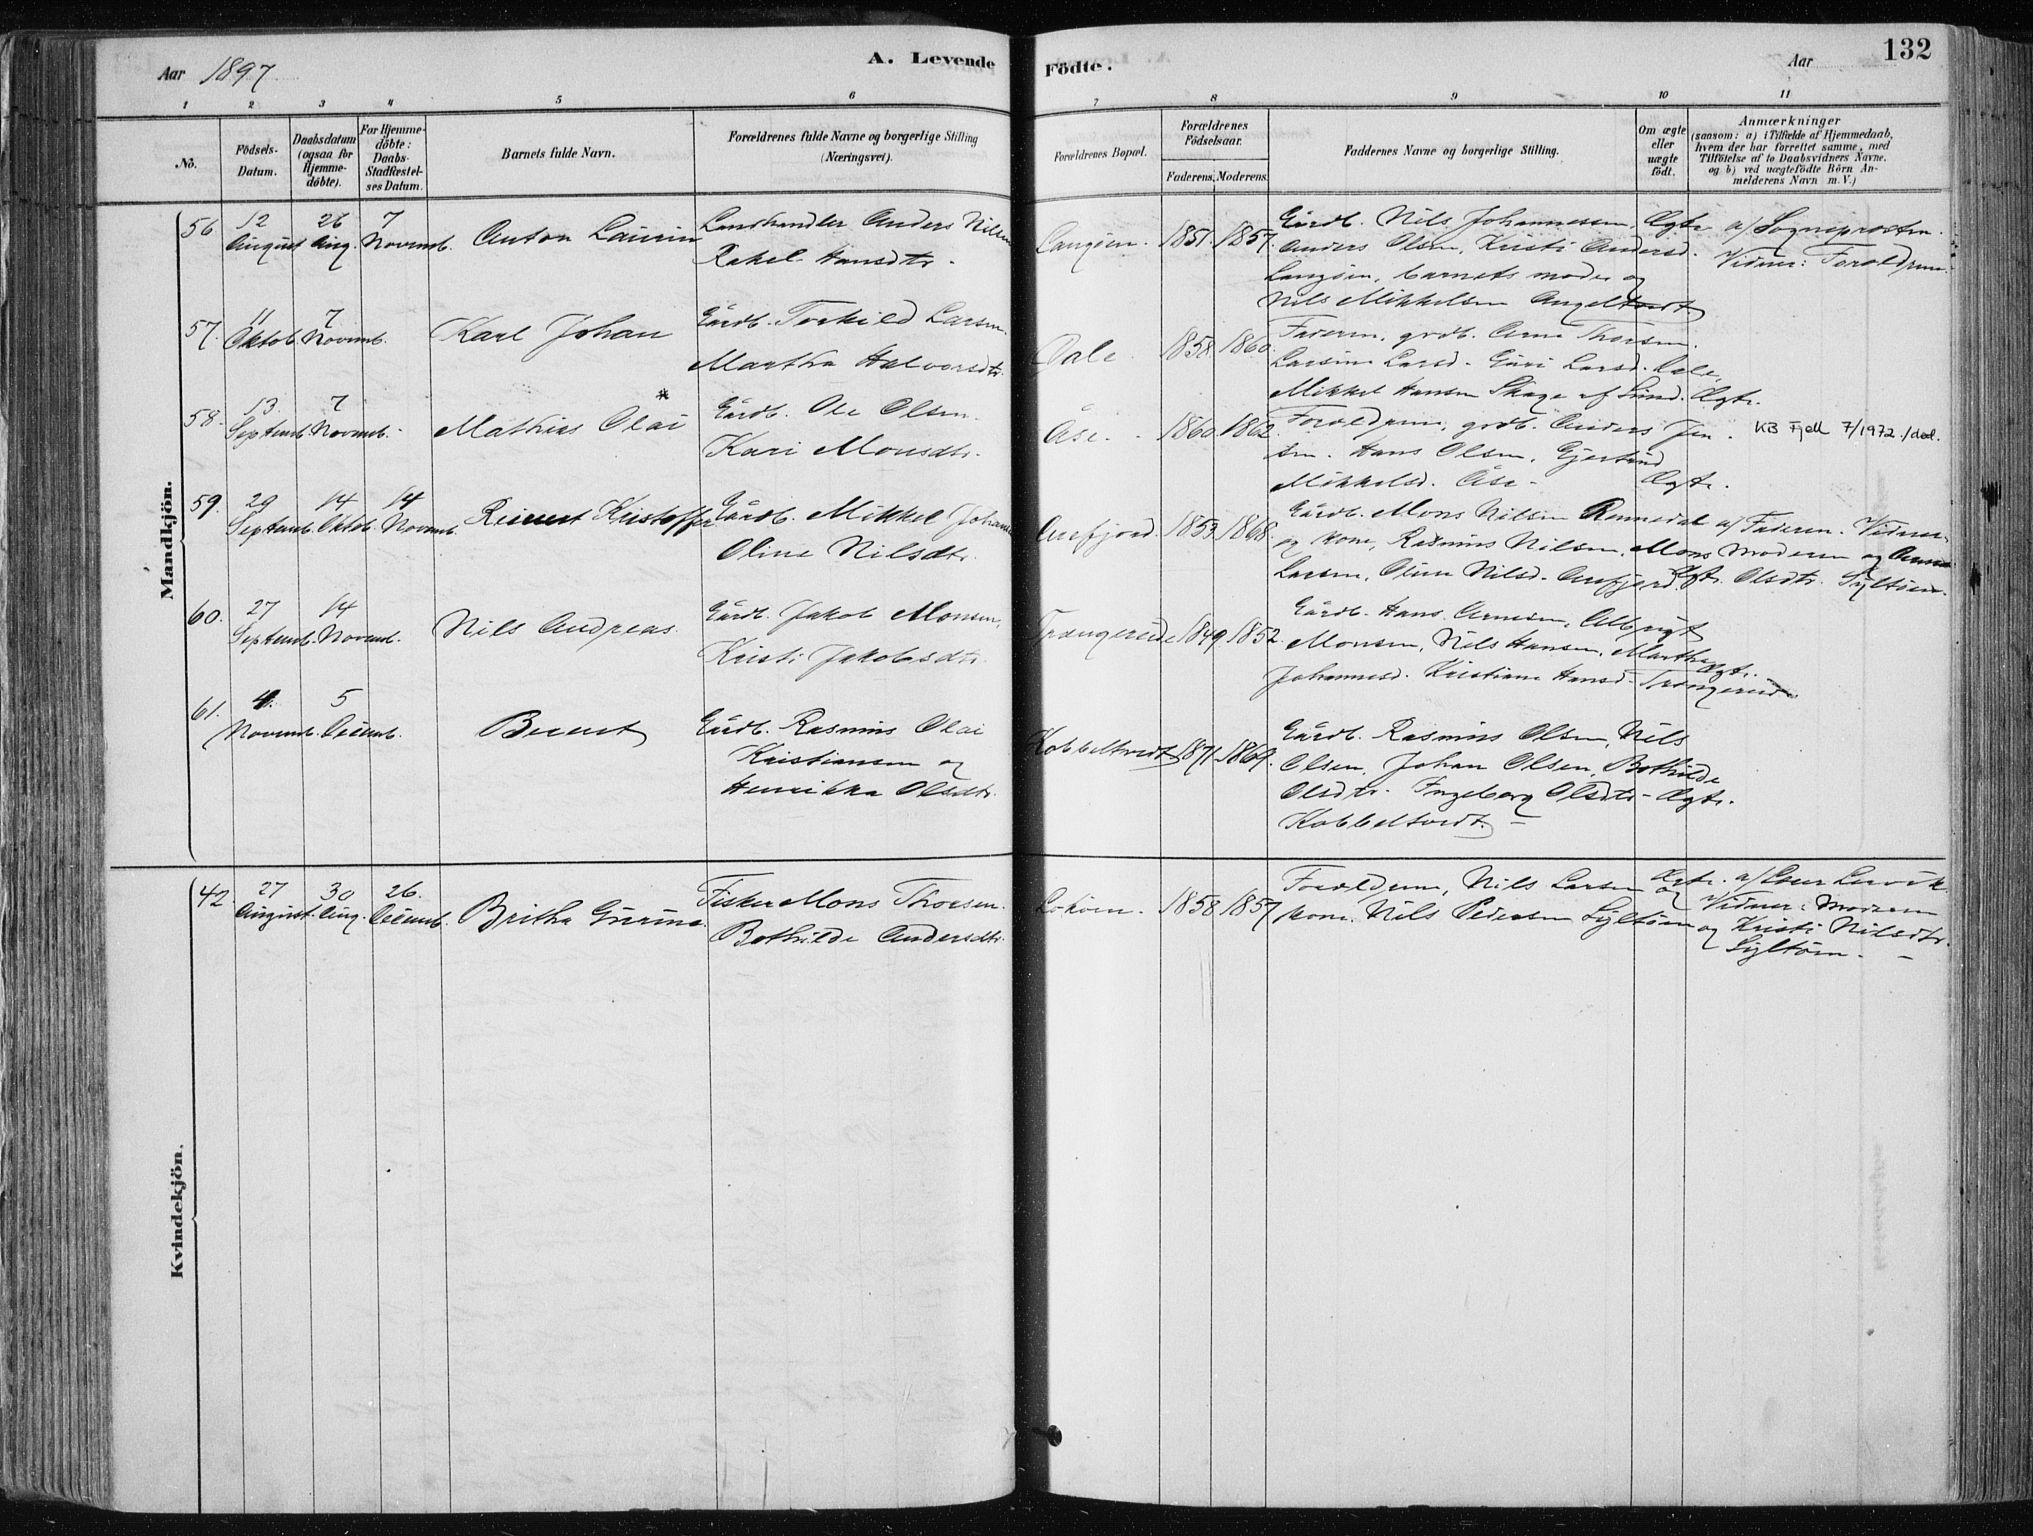 Aar 1897
A. Levende
Födte.
Aar
132
1 2 3 4 5 6 7 8 9 10 11
No.
Födsels-Datum.
Daabsdatum (ogsaa for Hjemmedöbte).
For Hjemmedöbte: Daabs-Stadfæstelses Datum.
Barnets fulde Navn.
Forældrenes fulde Navne og borgerlige Stilling
(Næringsvei).
Forældrenes Bopæl.
Forældrenes Födselsaar.
Faderens. Moderens.
Faddernes Navne og borgerlige Stilling.
Om ægte eller uægte födt.
Anmærkninger
(saasom: a) i Tilfælde af Hjemmedaab,
hvem der har forrettet samme, med
Tilföielse af to Daabsvidners Navne.
og b) ved uægtefödte Börn An-
melderens Navn m. V.)
Mandkjön.
56 12 August 26 Aug. 7 Novemb. Anton Laurin
Landhandler Anders Nilsen
Rakel Hansdtr.
Langöen. 1851. 1857.
Gårdb. Nils Johannessen,
Anders Olsen, Kristi Andersd.
Langöen, barnets moder og
Nils Mikkelsen Angeltvedt
Ægte
a/ Sogneprosten.
Vidner: Forældrene.
57. 11 Oktob. 7 Novemb. Karl Johan
Gårdb. Torkild Larsen
Martha Halvorsdtr.
Dale. 1858. 1860.
Faderen, grdb. Arne Thorsen.
Larsine Larsd. Guri Larsd. Dale,
Mikkel Hansen Skage af Sund. Ægte.
58. 13. Septemb. 7 Novemb. Mathias Olai *
Gårdb. Ole Olsen
Kari Monsdtr.
Åse. 1860. 1862.
Forældrene, grdb. Anders Jen-
sen. Hans Olsen, Gjertrud
Mikkelsd. Åse. Ægte.
KB Fjell 7/1972./ded.
59. 29 Septemb. 14 Oktob. 14 Novemb. Reinert Kristoffer
Gårdb. Mikkel Johannes
Oline Nilsdtr.
Arefjord. 1853. 1868.
Gårdb. Mons Nilsen Rennedal
og kone, Rasmus Nilsen, Mons
Larsen, Oline Nilsd. Arefjord. Ægte.
a/ Faderen. Vidner:
Moderen og Anna
Olsdtr. Syltöen.
60. 27 Septemb. 14 Novemb. Nils Andreas.
Gårdb. Jakob Monsen,
Kristi Jakobsdtr.
Trængereide 1849. 1852.
Gårdb. Hans Arnesen, Albrigt
Monsen, Nils Hansen, Martha
Johannesd. Kristiane Hansd. Trængereide
Ægte.
61. 4. Novemb. 5 Decemb. Berent
Gårdb. Rasmus Olai
Kristiansen og
Henrikka Olsdtr.
Kobbeltvedt 1871. 1869.
Gårdb. Rasmus Olsen, Nils
Olsen, Johan Olsen, Bothilde
Olsdtr. Ingeborg Olsdtr. Ægte.
Kobbeltvedt.
Kvindekjön.
42. 27 August. 30 Aug. 26. Decemb. Britha Gurina.
Fisker Mons Thorsen.
Bothilde Andersdtr.
Loköen. 1858. 1857
Forældrene, Nils Larsen og
kone. Nils Pedersen Syltöen
Ægte.
Vidner: Moderen
og Kristi Nilsdtr.
Syltöen.